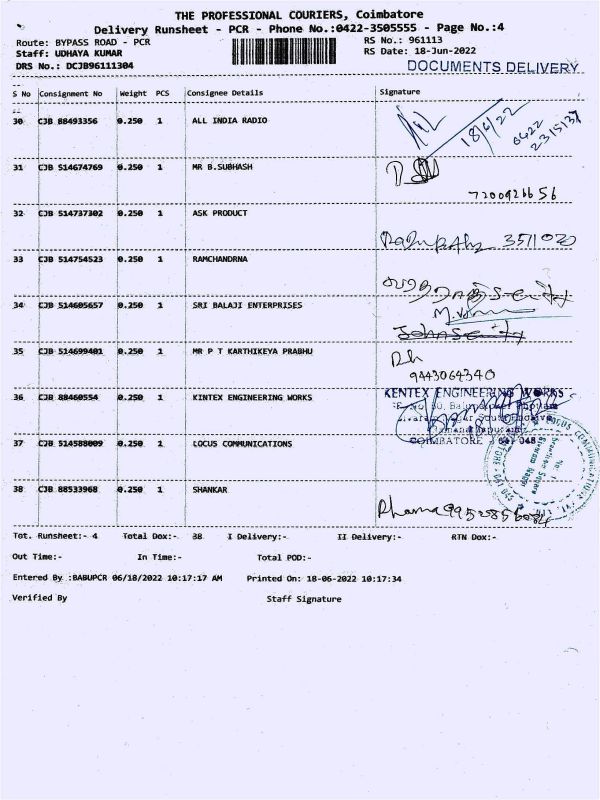 THE PROFESSIONAL COURIERS, Coimbatore
Delivery Runsheet - PCR - Phone No.:0422-3505555 - Page No.:4
Route: BYPASS ROAD - PCR RS No.: 961113
Staff: UDHAYA KUMAR RS Date: 18-Jun-2022
DRS No.: DCJB96111304 DOCUMENTS DELIVERY
S No Consignment No Weight PCS Consignee Details Signature
30 CJB 88493356 0.250 1 ALL INDIA RADIO 18/6/22 0422 2315137
31 CJB 514674769 0.250 1 MR B.SUBHASH
7200926656
32 CJB 514737302 0.250 1 ASK PRODUCT
33 CJB 514754523 0.250 1 RAMCHANDRNA
34 CJB 514605657 0.250 1 SRI BALAJI ENTERPRISES
35 CJB 514699401 0.250 1 MR P T KARTHIKEYA PRABHU
9443064340
36 CJB 88460554 0.250 1 KINTEX ENGINEERING WORKS KENTEX ENGINEERING WORKS
COIMBATORE - 641 048
37 CJB 514588009 0.250 1 LOCUS COMMUNICATIONS
38 CJB 88533968 0.250 1 SHANKAR
Tot. Runsheet:- 4 Total Dox:- 38 I Delivery:- II Delivery:- RTN Dox:-
Out Time:- In Time:- Total POD:-
Entered By :BABUPCR 06/18/2022 10:17:17 AM Printed On: 18-06-2022 10:17:34
Verified By Staff Signature